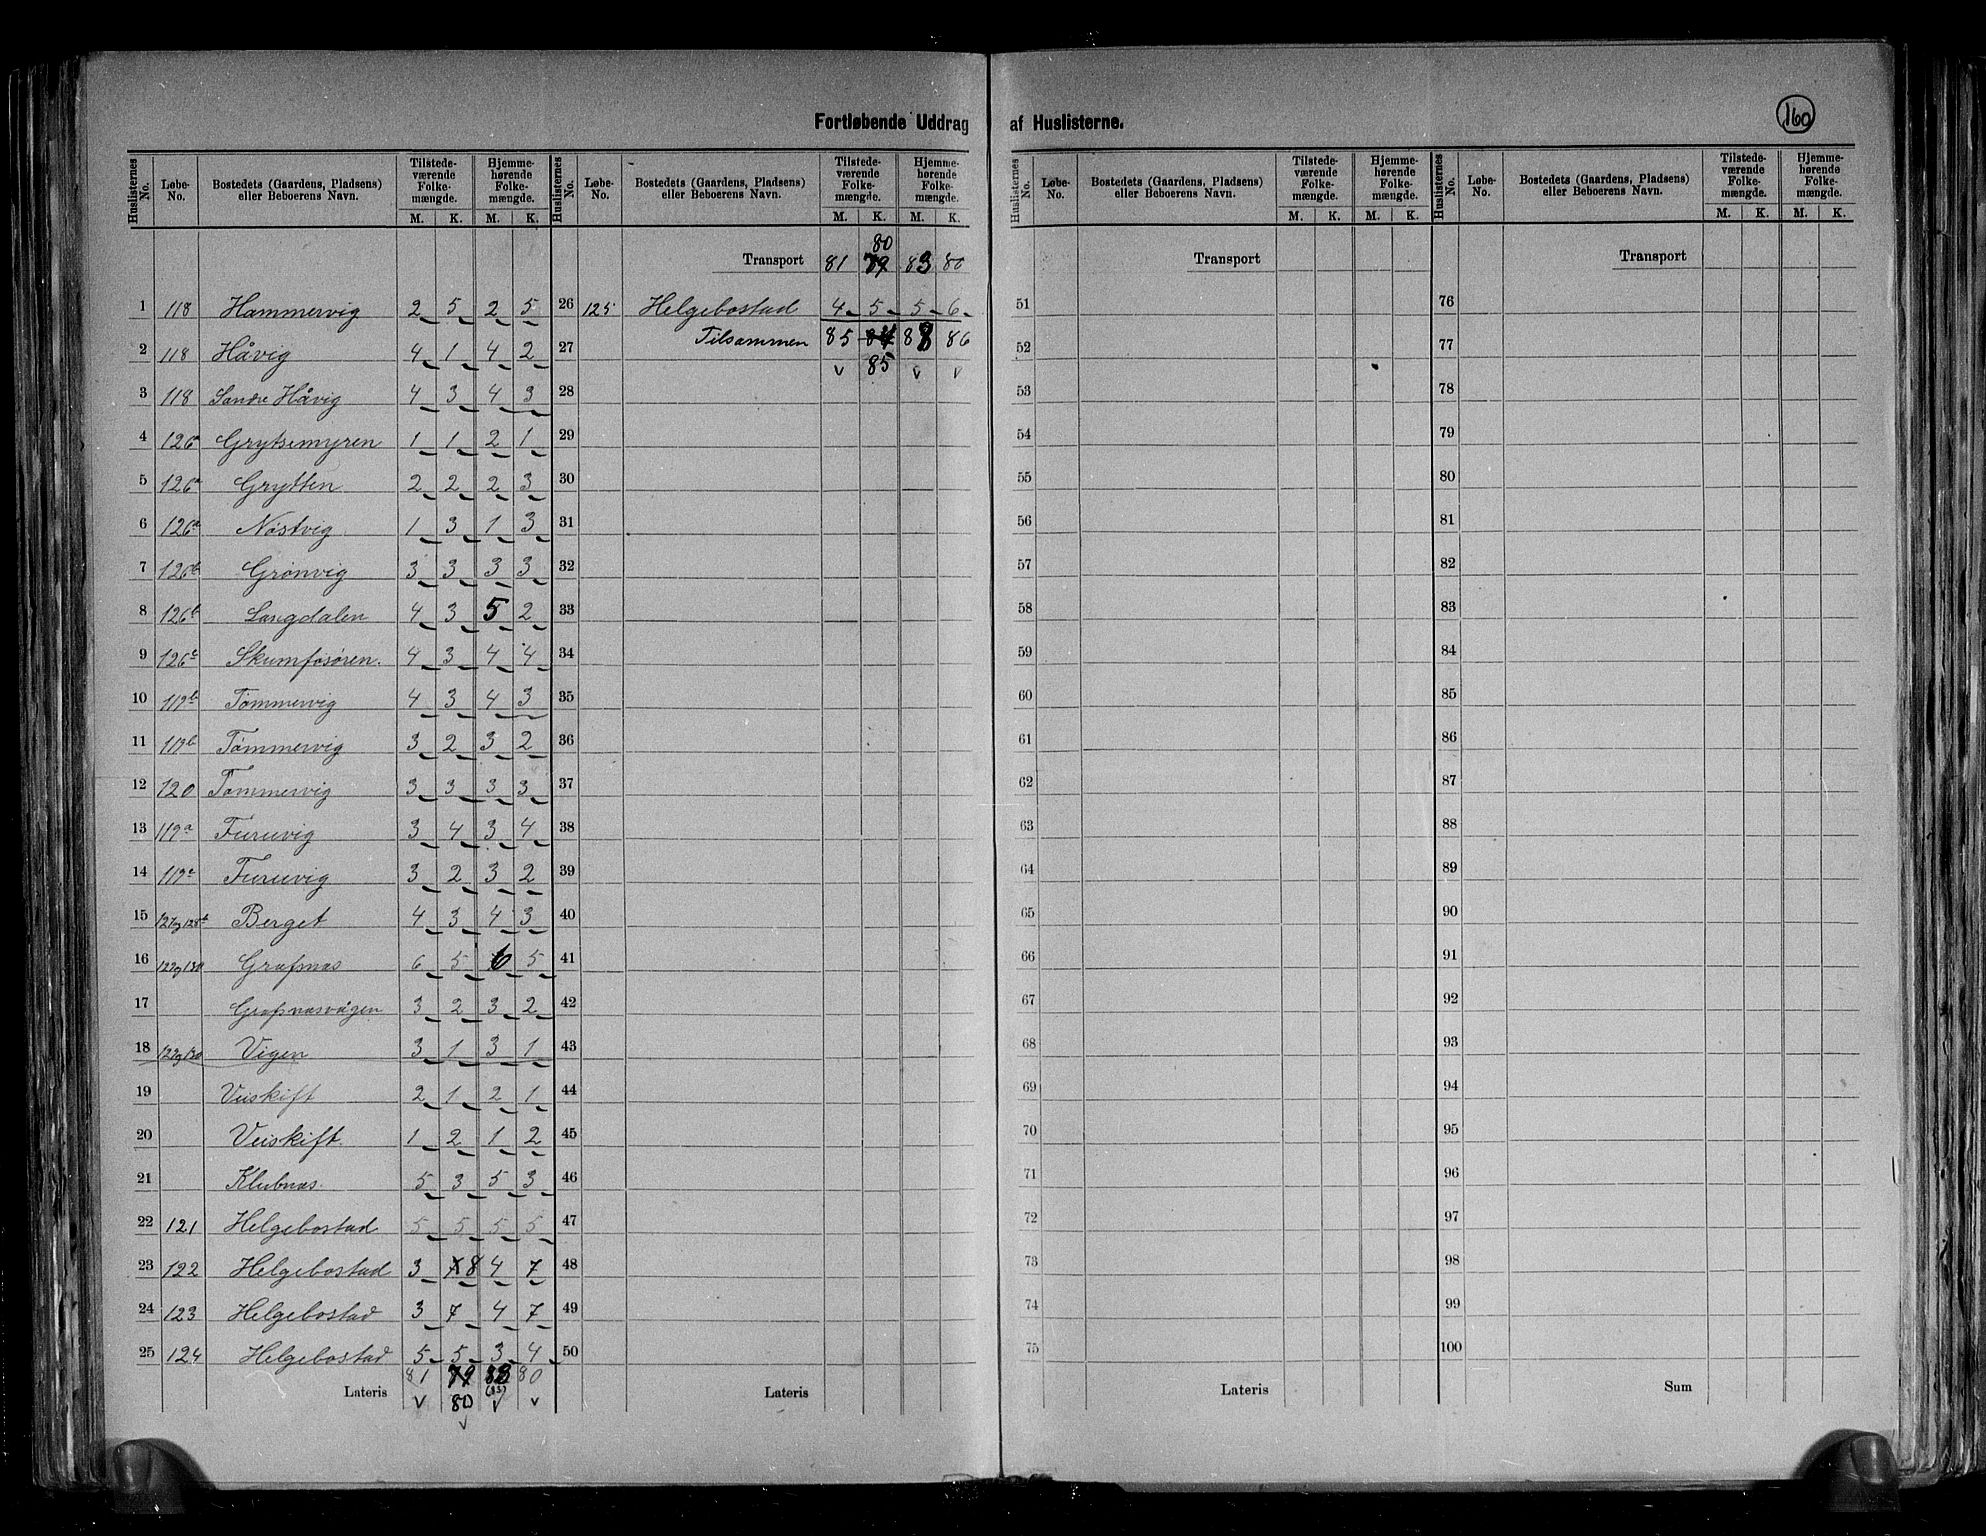 Fortløbende Uddrag af Huslisterne.
160
Huslisternes No. | Løbe-No. | Bostedets (Gaardens, Pladsens) eller Beboerens Navn. | Tilstedeværende Folkemængde. M. K. | Hjemmehørende Folkemængde. M. K.
1 118 Hammervig 2 5 2 5
2 118 Håvig 4 1 4 2
3 118 Søndre Håvig 4 3 4 3
4 126a Grytsemyren 1 1 2 1
5 126a Grytten 2 2 2 3
6 126a Nøstvig 1 3 1 3
7 126b Grønvig 3 3 3 3
8 126b Langdalen 4 3 5 2
9 126c Skumfosøren. 4 3 4 4
10 119b Tømmervig 4 3 4 3
11 119b Tømmervig 3 2 3 2
12 120 Tømmervig 3 3 3 3
13 119a Furuvig 3 4 3 4
14 119a Furuvig 3 2 3 2
15 127og128b Berget 4 3 4 3
16 127og130 Grafnæs 6 5 6 5
17 Grafnæsvågen 3 2 3 2
18 127og130 Vigen 3 1 3 1
19 Veiskift 2 1 2 1
20 Veiskift. 1 2 1 2
21 Klubnæs. 5 3 5 3
22 121 Helgebostad 5 5 5 5
23 122 Helgebostad 3 8 4 7
24 123 Helgebostad 3 7 4 7
25 124 Helgebostad 5 5 3 4
Lateris 81 79 83 80
80 (83)
Huslisternes No. | Løbe-No. | Bostedets (Gaardens, Pladsens) eller Beboerens Navn. | Tilstedeværende Folkemængde. M. K. | Hjemmehørende Folkemængde. M. K.
80
Transport 81 79 83 80
26 125 Helgebostad 4 5 5 6
27 Tilsammen 85 84 88 86
85
28
29
30
31
32
33
34
35
36
37
38
39
40
41
42
43
44
45
46
47
48
49
50
Lateris
Huslisternes No. | Løbe-No. | Bostedets (Gaardens, Pladsens) eller Beboerens Navn. | Tilstedeværende Folkemængde. M. K. | Hjemmehørende Folkemængde. M. K.
Transport
51
52
53
54
55
56
57
58
59
60
61
62
63
64
65
66
67
68
69
70
71
72
73
74
75
Lateris
Huslisternes No. | Løbe-No. | Bostedets (Gaardens, Pladsens) eller Beboerens Navn. | Tilstedeværende Folkemængde. M. K. | Hjemmehørende Folkemængde. M. K.
Transport
76
77
78
79
80
81
82
83
84
85
86
87
88
89
90
91
92
93
94
95
96
97
98
99
100
Sum